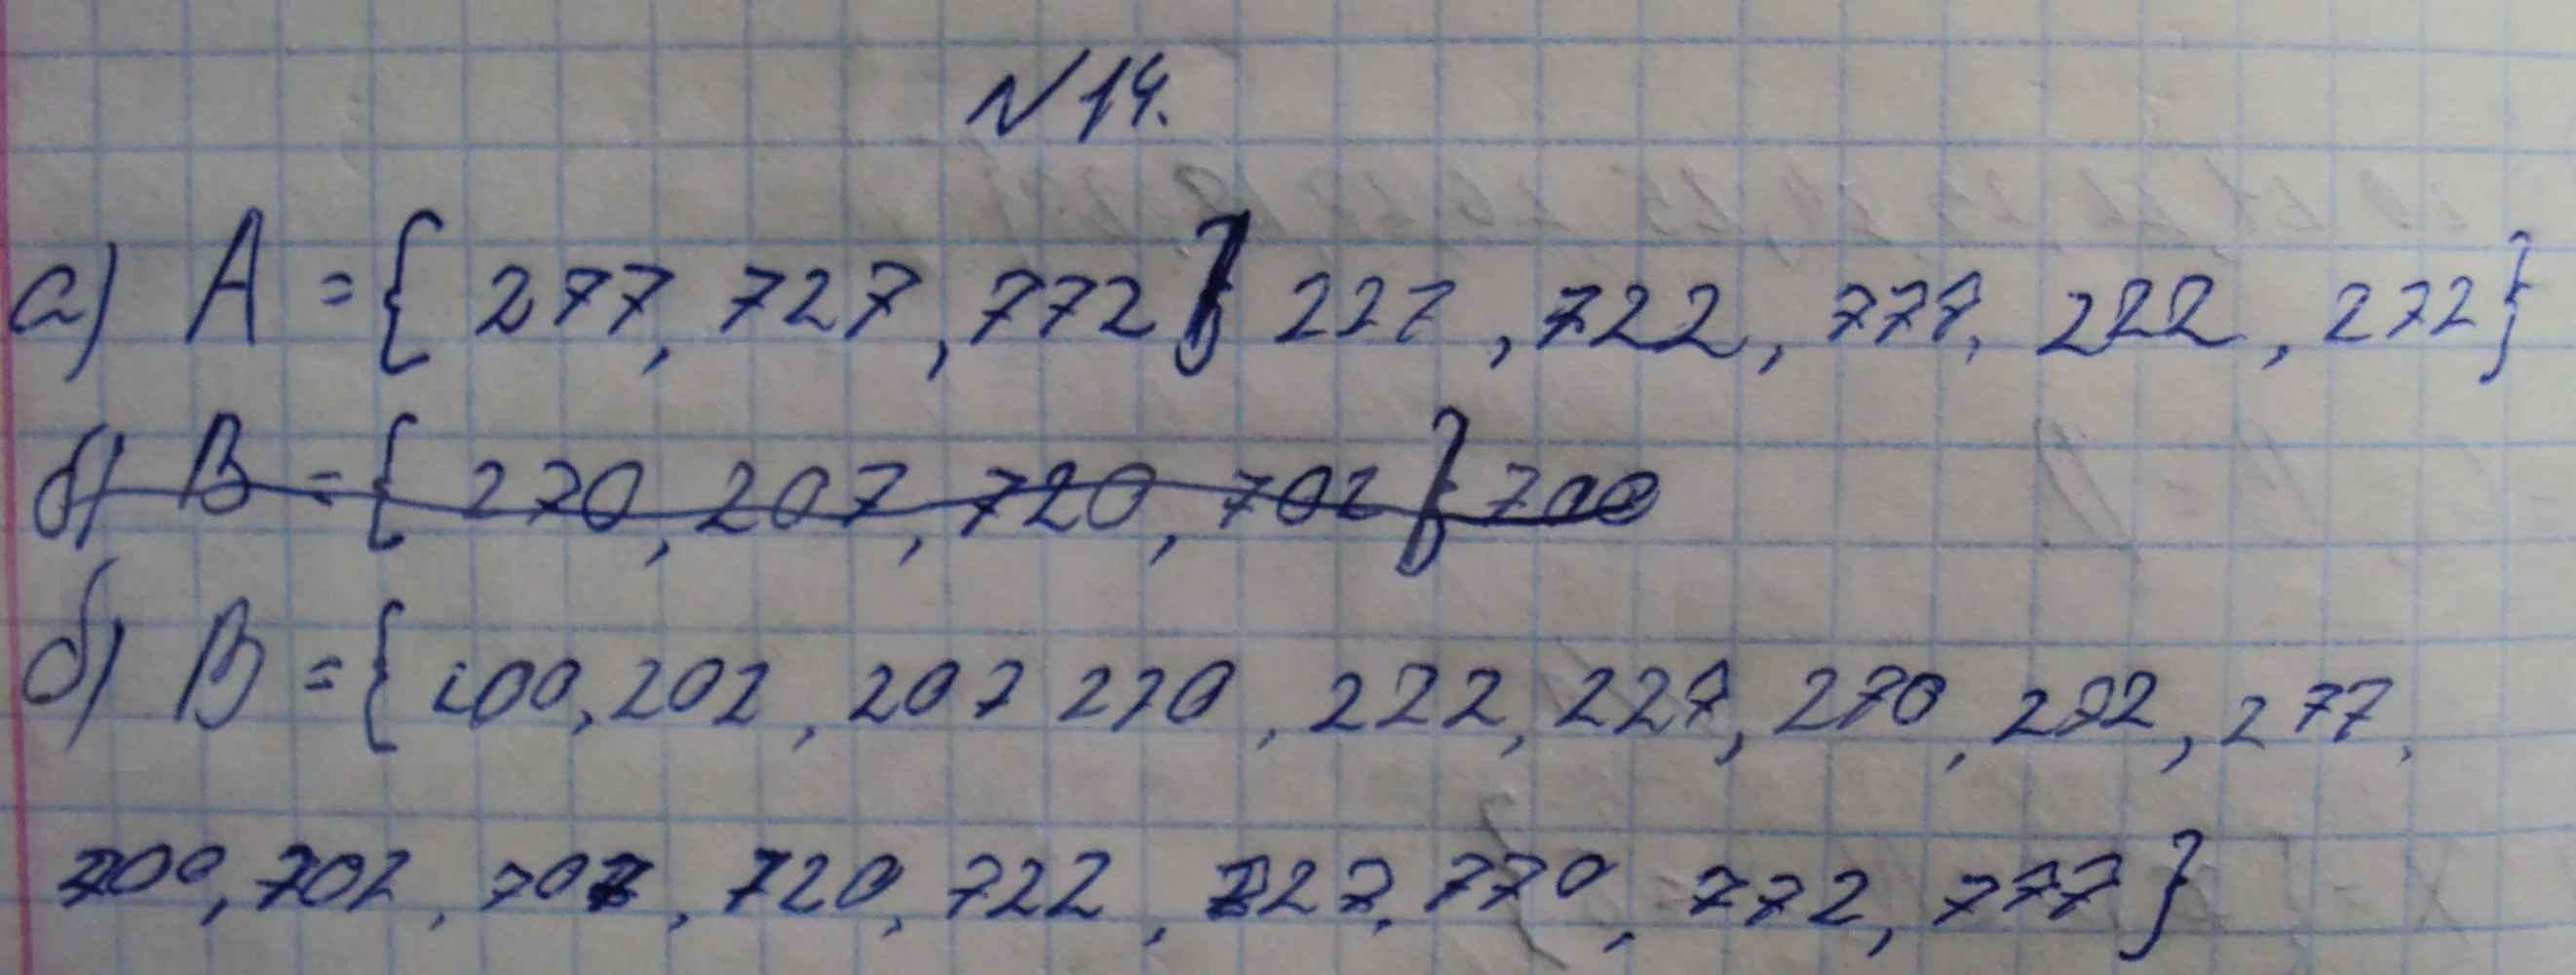 №14.
а) A = { 277, 727, 772 } 227, 722, 777, 222, 272 }
б) B = { 270, 207, 720, 702 } 700
б) B = { 200, 202, 207 220, 222, 227, 270, 272, 277,
700, 702, 707, 720, 722, 727, 770, 772, 777 }